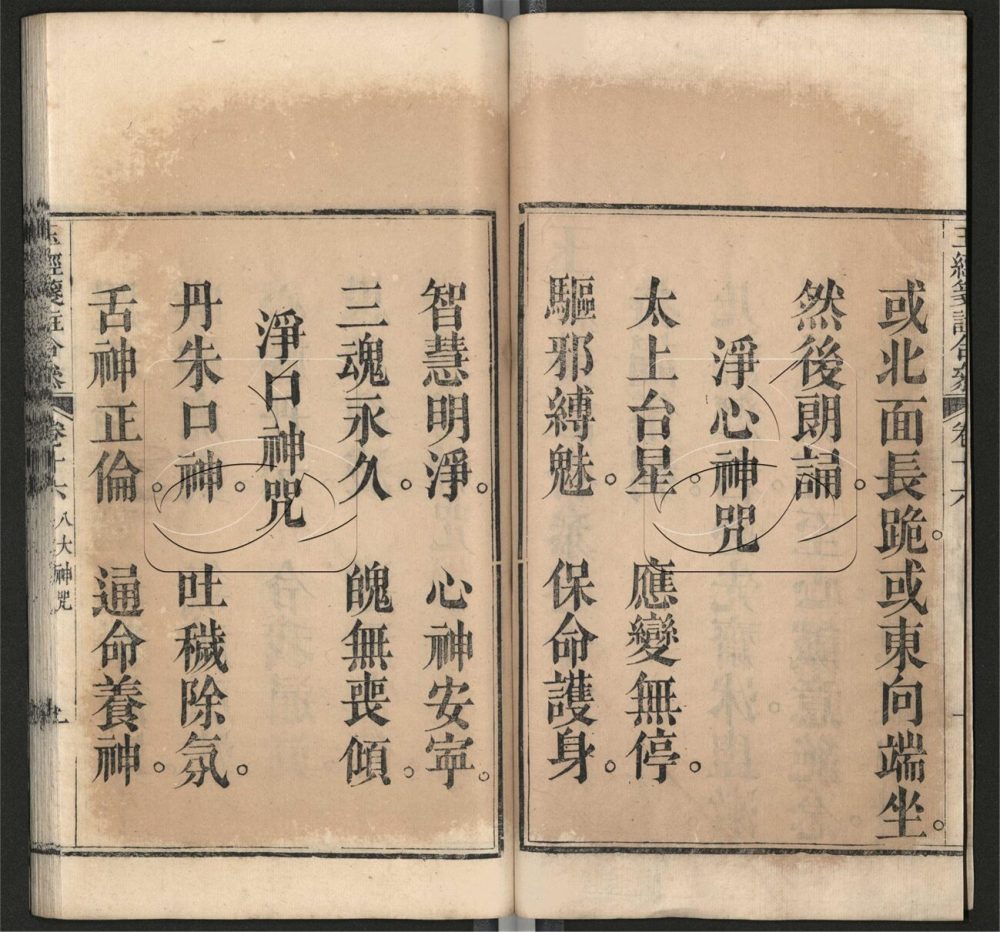 或北面長跪。或東向端坐。
然後朗誦。
淨心神咒
太上台星。應變無停。
驅邪縛魅。保命護身。
智慧明淨。心神安寧。
三魂永久。魄無喪傾。
淨口神咒
丹朱口神。吐穢除氛。
舌神正倫。通命養神。
玉經箋註合參 卷十六 八大神咒